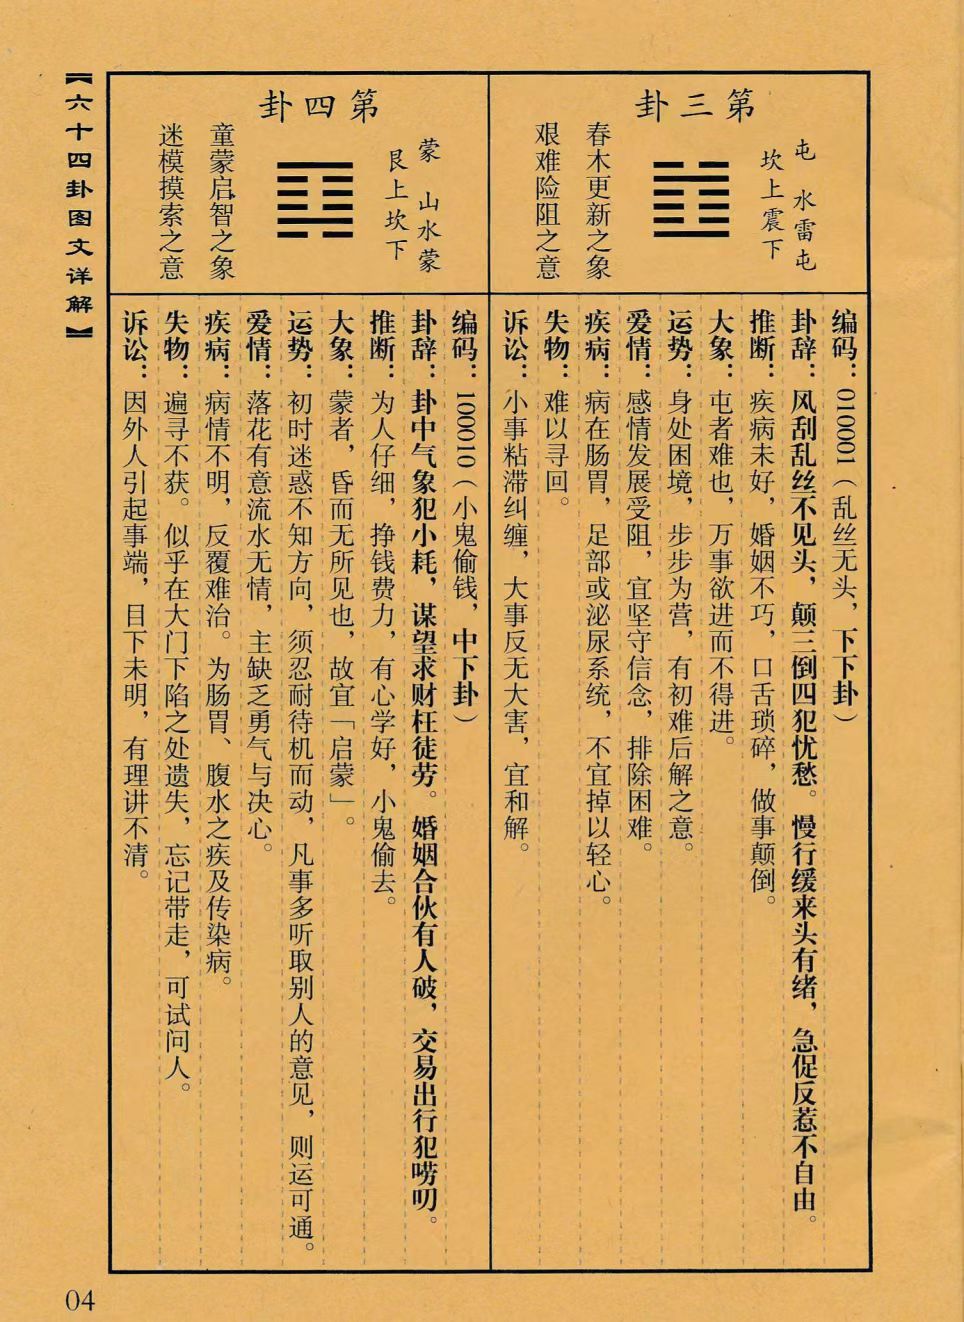 第三卦
屯 水雷屯
坎上震下
春木更新之象
艰难险阻之意
编码：010001（乱丝无头，下下卦）
卦辞：风刮乱丝不见头，颠三倒四犯忧愁。慢行缓来头有绪，急促反惹不自由。
推断：疾病未好，婚姻不巧，口舌琐碎，做事颠倒。
大象：屯者难也，万事欲进而不得进。
运势：身处困境，步步为营，有初难后解之意。
爱情：感情发展受阻，宜坚守信念，排除困难。
疾病：病在肠胃，足部或泌尿系统，不宜掉以轻心。
失物：难以寻回。
诉讼：小事粘滞纠缠，大事反无大害，宜和解。
第四卦
蒙 山水蒙
艮上坎下
童蒙启智之象
迷模摸索之意
编码：100010（小鬼偷钱，中下卦）
卦辞：卦中气象犯小耗，谋望求财枉徒劳。婚姻合伙有人破，交易出行犯唠叨。
推断：为人仔细，挣钱费力，有心学好，小鬼偷去。
大象：蒙者，昏而无所见也，故宜「启蒙」。
运势：初时迷惑不知方向，须忍耐待机而动，凡事多听取别人的意见，则运可通。
爱情：落花有意流水无情，主缺乏勇气与决心。
疾病：病情不明，反覆难治。为肠胃、腹水之疾及传染病。
失物：遍寻不获。似乎在大门下陷之处遗失，忘记带走，可试问人。
诉讼：因外人引起事端，目下未明，有理讲不清。
【六十四卦图文详解】
04